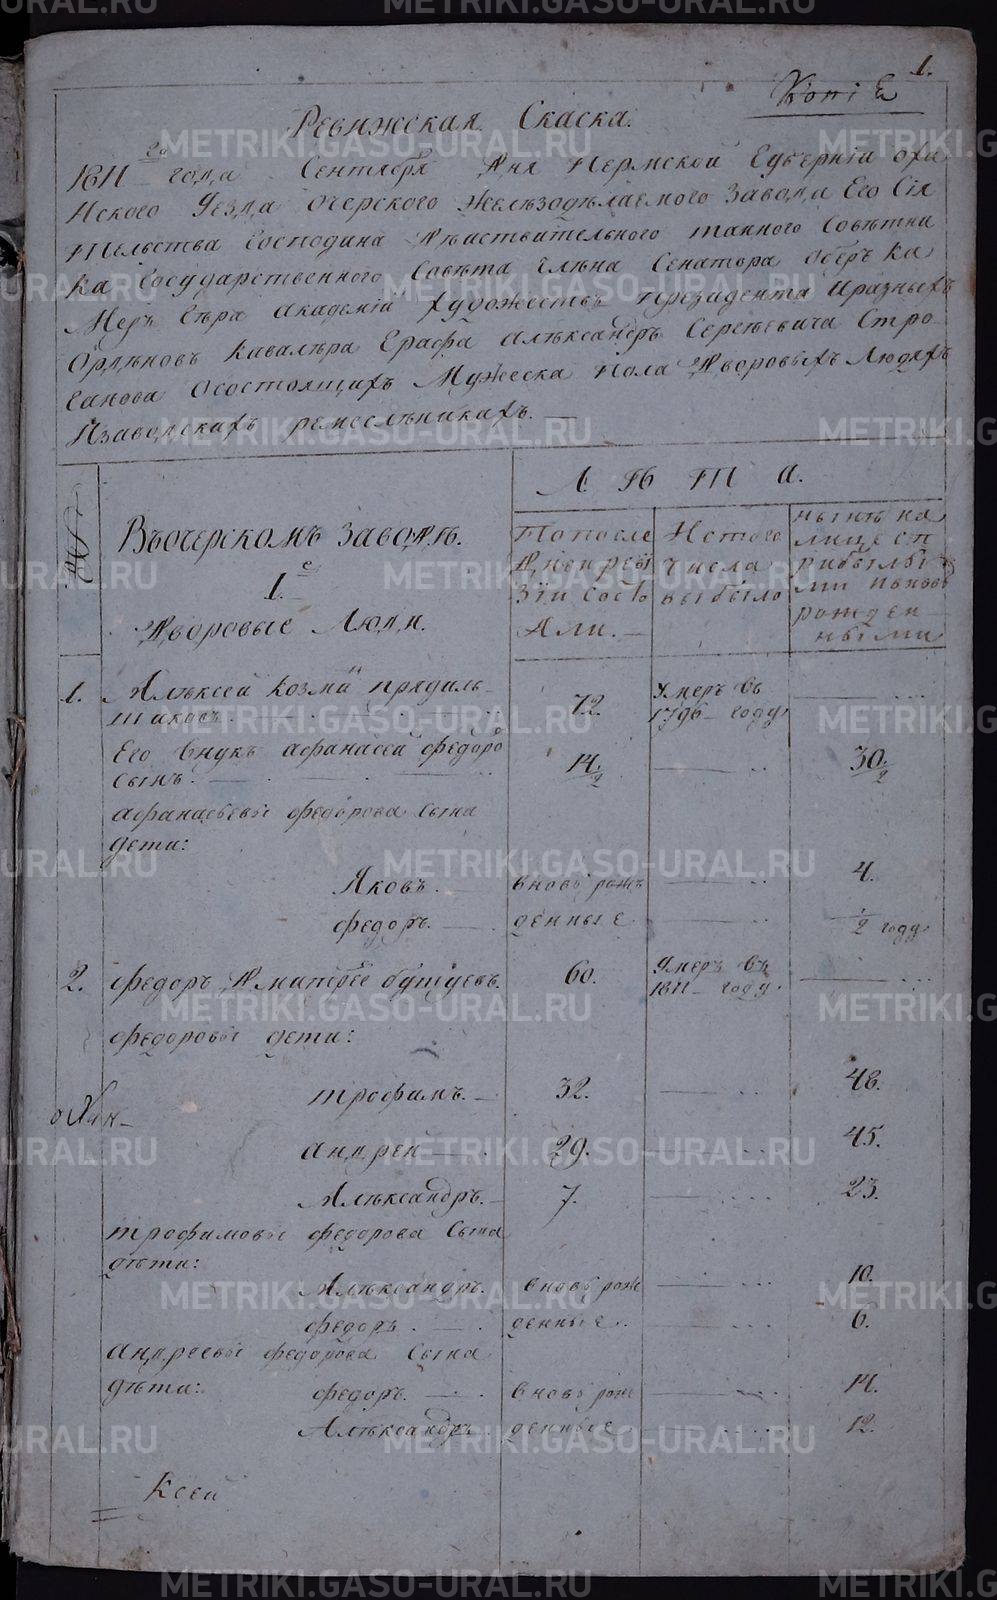 1.
Копiя
Ревижская Скаска.
1811 го года Сентября Дня Пермской Губернiи оха
нского Уезда очерского Железоделаемого завода Его Сiя
тельства Господина Действительного таиного Советни
ка Государственного Совета члена Сенатора оберъ Ка
Мер Гера Академiи художествъ президента иразныхъ
Орденовъ Кавалера Графа Александръ Сергеевича Стро
ганова Осостоящихъ Мужеска Пола Дворовыхъ Людехъ
Изаводскихъ ремесленикахъ. —
Л Ѣ Т А.
Въочерскомъ заводѣ.
1е
Дворовые Люди.
Попосле
дней реви
зiи состо
яли. —
Истого
числа
выбыло
ныне на
лице сп
рибылы
ми ивновь
рожден
ными
1. Алексей Козмин прядиль
щиковъ. 72. Умеръ въ
1796 году
Его Внукъ афанасей федоро
Сынъ. 14 1/2 30 1/2
афанасьевы федорова Сына
дети:
Яковъ. вновь рож 4.
федоръ. денные 1/2 году
2. федоръ Дмитрее бутуевъ. 60. Умеръ въ
1811 году.
федоровы дети:
трофимъ. 32. 48.
Андрей 29. 45.
Александръ. 7. 23.
трофимовы федорова Сына
дети:
Александръ. вновь рож 10.
федоръ денные. 6.
андреевы федорова Сына
дети: федоръ. вновь рож 14.
Александръ денные 12.
Ксей
METRIKI.GASO-URAL.RU